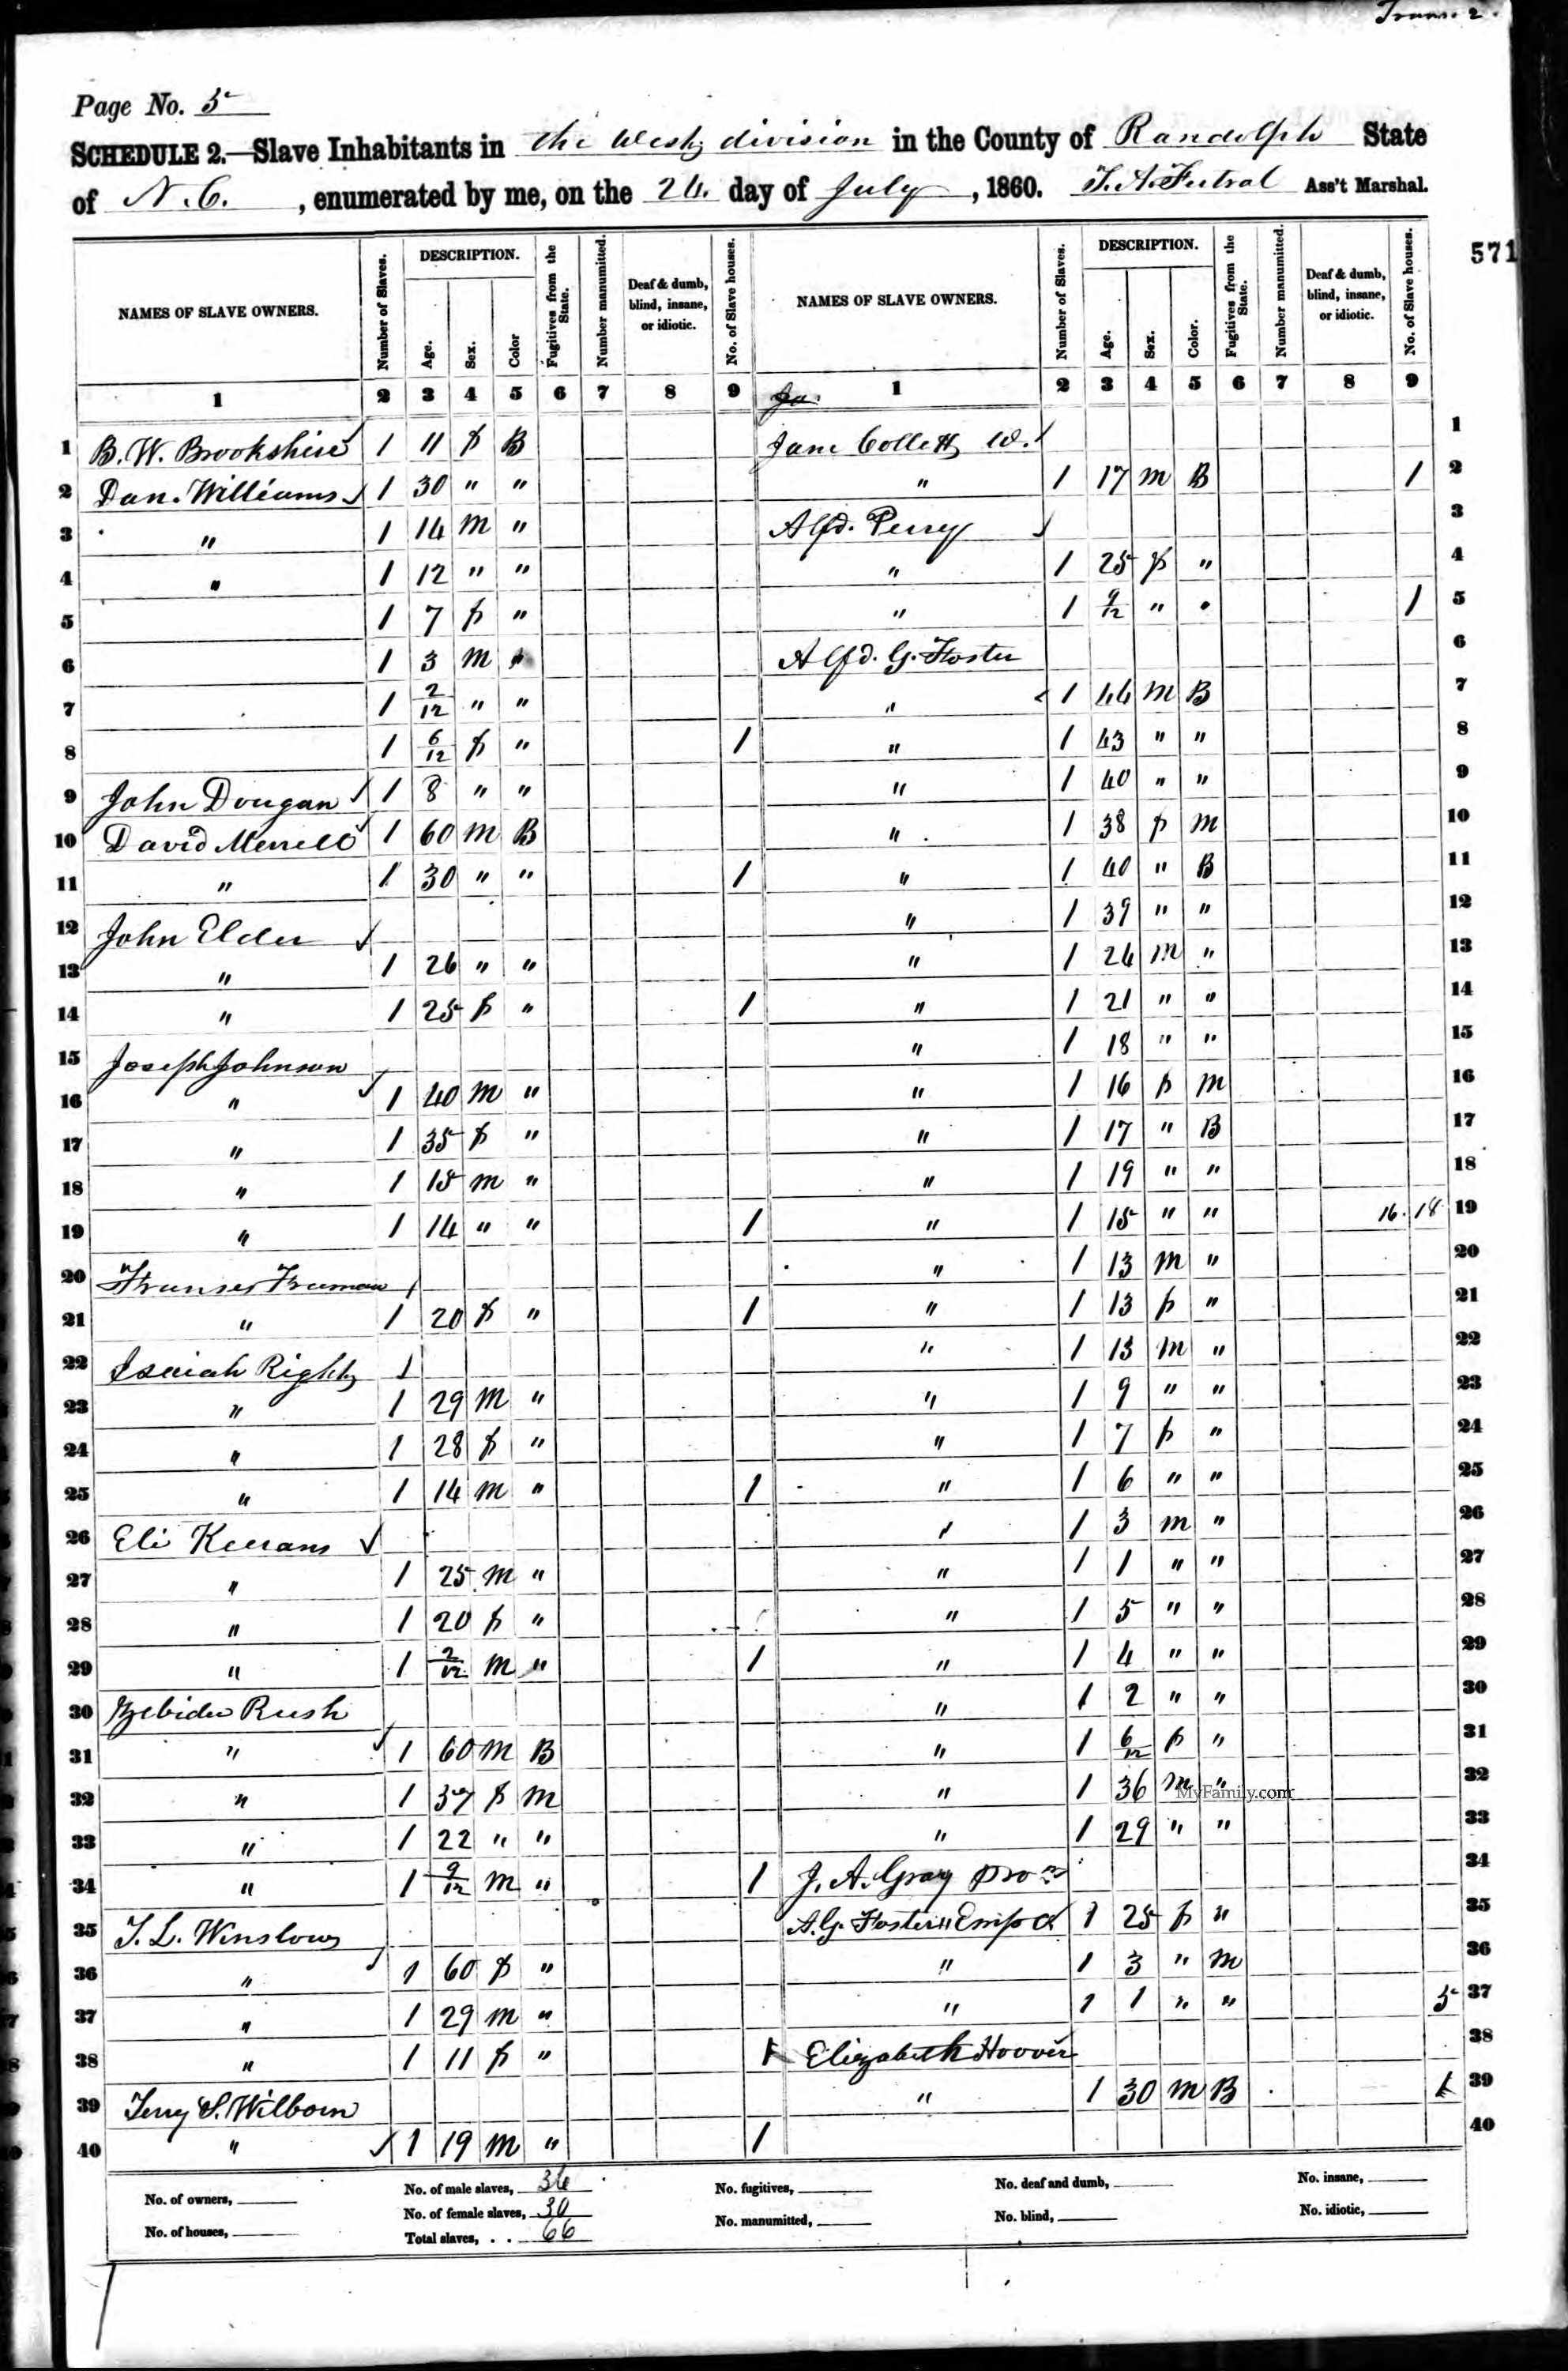 Page No. 5
SCHEDULE 2.—Slave Inhabitants in the West division in the County of Randolph State
of N.C., enumerated by me, on the 24 day of July, 1860. Ass't Marshal.
571
NAMES OF SLAVE OWNERS. Number of Slaves. DESCRIPTION. Age. Sex. Color Fugitives from the State. Number manumitted. Deaf & dumb, blind, insane, or idiotic. No. of Slave houses. NAMES OF SLAVE OWNERS. Number of Slaves. DESCRIPTION. Age. Sex. Color. Fugitives from the State. Number manumitted. Deaf & dumb, blind, insane, or idiotic. No. of Slave houses.
1 2 3 4 5 6 7 8 9 1 2 3 4 5 6 7 8 9
1 B. W. Brookshire 1 11 f B Jane Collett W. 1
2 Dan. Williams 1 30 " " " 1 17 m B 1 2
3 " 1 14 m " Alfd. Perry 3
4 " 1 12 " " " 1 25 f " 4
5 1 7 f " " 1 9/12 " " 1 5
6 1 3 m " Alfd. G. Foster 6
7 1 2/12 " " " 1 44 m B 7
8 1 6/12 f " 1 " 1 43 " " 8
9 John Dougan 1 8 " " " 1 40 " " 9
10 David Merrell 1 60 m B " 1 38 f m 10
11 " 1 30 " " 1 " 1 40 " B 11
12 John Elder " 1 39 " " 12
13 " 1 26 " " " 1 24 m " 13
14 " 1 25 f " 1 " 1 21 " " 14
15 Joseph Johnson " 1 18 " " 15
16 " 1 40 m " " 1 16 f m 16
17 " 1 35 f " " 1 17 " B 17
18 " 1 15 m " " 1 19 " " 18
19 " 1 14 " " 1 " 1 15 " " 16. 18 19
20 " 1 13 m " 20
21 " 1 20 f " 1 " 1 13 f " 21
22 Isaiah Right " 1 13 m " 22
23 " 1 29 m " " 1 9 " " 23
24 " 1 28 f " " 1 7 f " 24
25 " 1 14 m " 1 " 1 6 " " 25
26 Eli Keerans " 1 3 m " 26
27 " 1 25 m " " 1 1 " " 27
28 " 1 20 f " " 1 5 " " 28
29 " 1 2/12 m " 1 " 1 4 " " 29
30 Rush " 1 2 " " 30
31 " 1 60 m B " 1 6/12 f " 31
32 " 1 37 f m " 1 36 m " 32
MyFamily.com
33 " 1 22 " " " 1 29 " " 33
34 " 1 9/12 m " 1 J. A. Gray 34
35 T. L. Winslow A. G. Foster 1 25 f " 35
36 " 1 60 f " " 1 3 " m 36
37 " 1 29 m " " 1 1 " " 5 37
38 " 1 11 f " 1 Elizabeth Hoover 38
39 S. Wilborn " 1 30 m B 1 39
40 " 1 19 m " 1 40
No. of owners, No. of male slaves, 36 No. fugitives, No. deaf and dumb, No. insane,
No. of houses, No. of female slaves, 30 No. manumitted, No. blind, No. idiotic,
Total slaves, . . 66